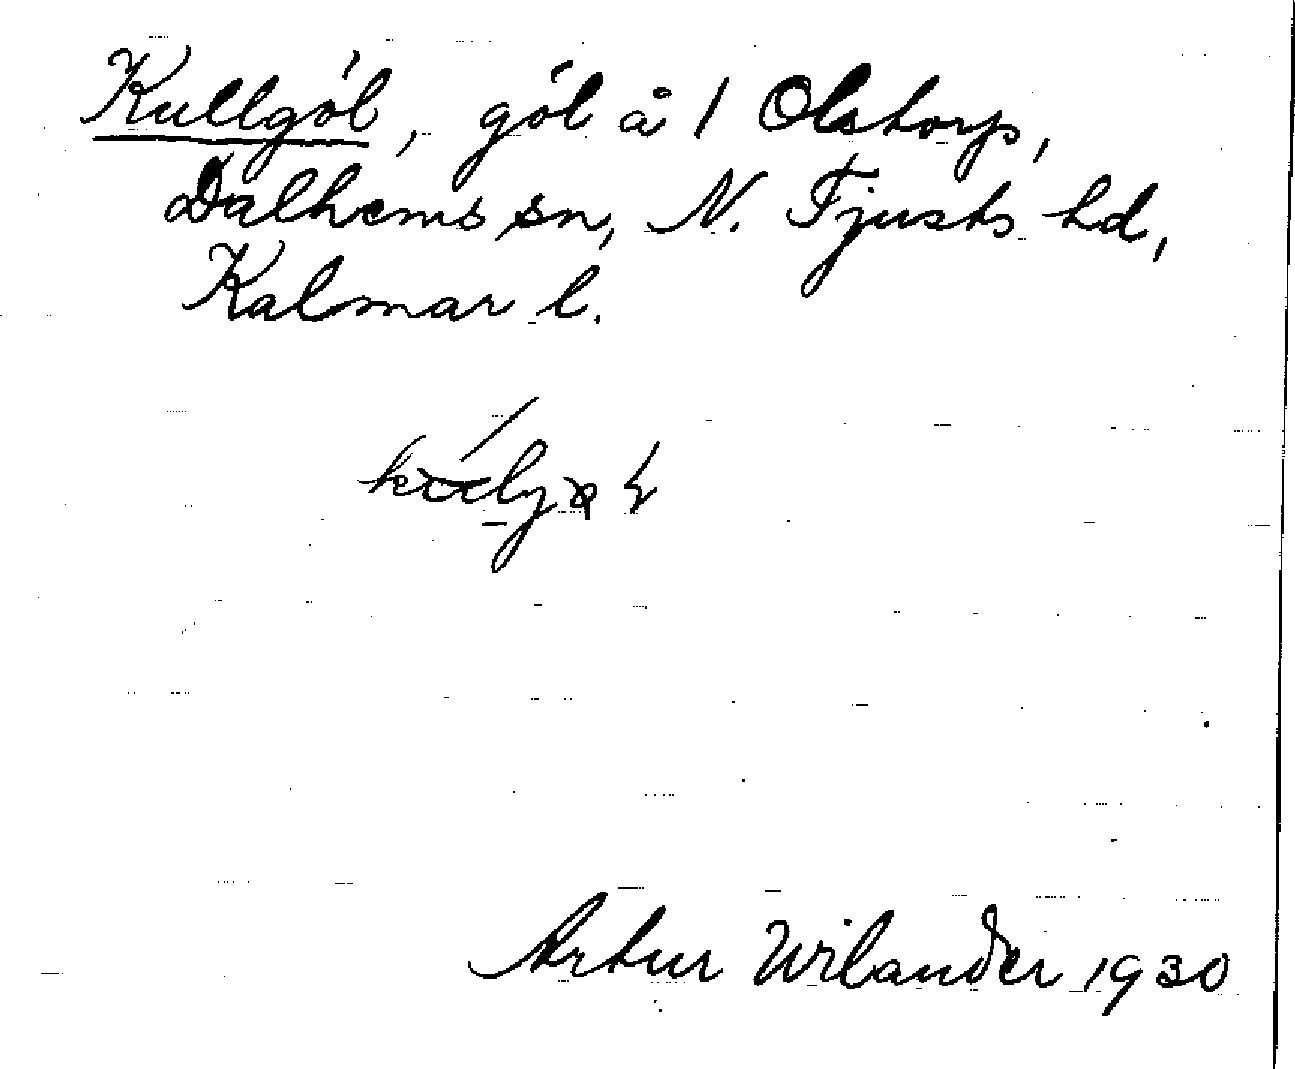 Kullgól, gól å 1 Olstorp,
Dalhems sn, N. Tjusts hd,
Kalmar l.
Artur Wilander 1930